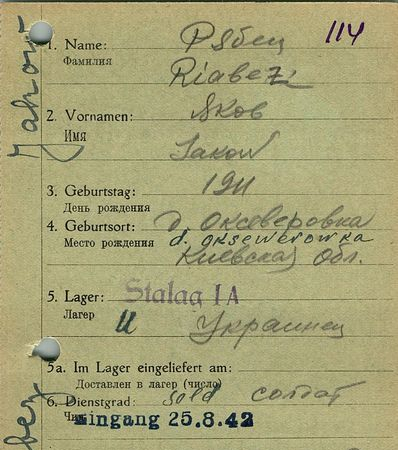 114
1. Name: Рябец
Фамилия Riabez
2. Vornamen: Яков
Имя Jakow
3. Geburtstag: 1911
День рождения
4. Geburtsort: д. Оксеверовка
Место рождения d. Oksewerowka
Киевская обл.
5. Lager: Stalag I A
Лагерь U Украинец
5a. Im Lager eingeliefert am:
Доставлен в лагерь (число)
6. Dienstgrad: Sold солдат
Чин Eingang 25.8.42
Jakow
bez